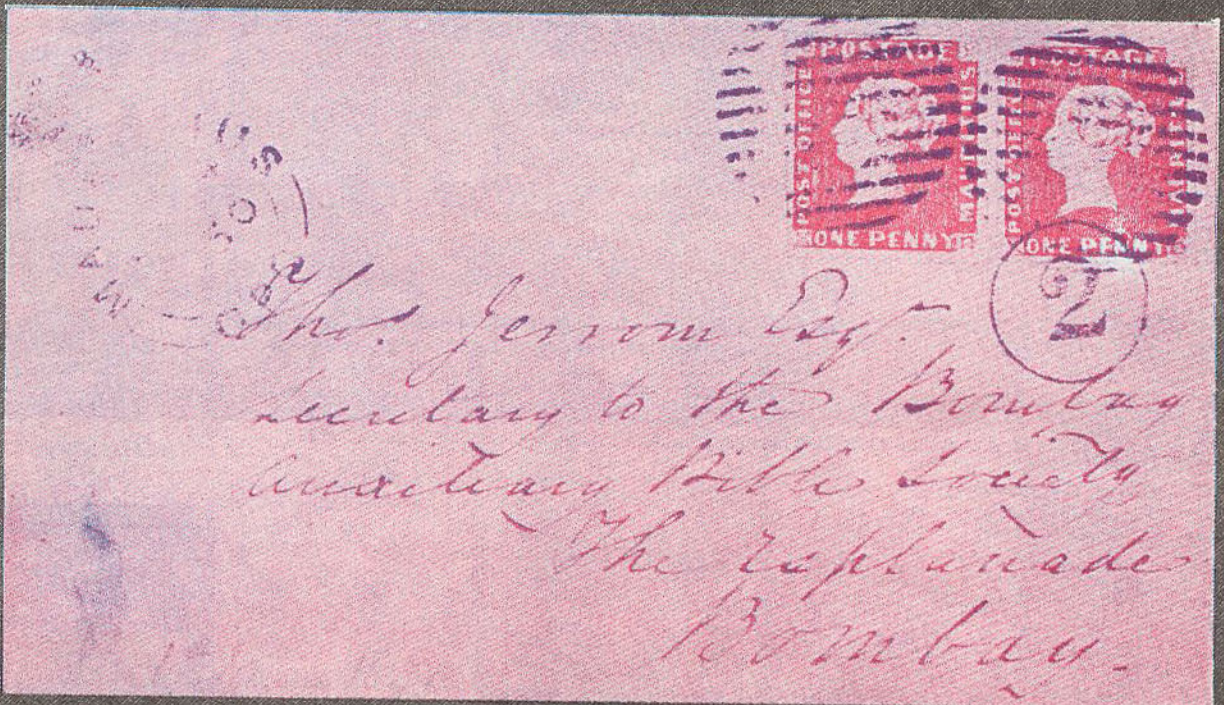 POSTAGE
POST OFFICE
MAURITIUS
ONE PENNY
POSTAGE
POST OFFICE
MAURITIUS
ONE PENNY
2
MAURITIUS
Thos. Jerrom Esqr.
Secretary to the Bombay
Auxiliary Bible Society
The Esplanade
Bombay.